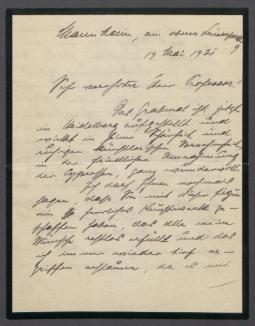 Mannheim, am obern Luisenpark
9
19 Mai 1920
Sehr verehrter Herr Professor!
Das Grabmal ist jetzt
in Heidelberg aufgestellt und
wirkt in seiner Schönheit und
in der friedlichen Umgebung
der Cypressen, ganz wundervoll
Ich darf Ihnen nochmals
sagen, dass Sie mit dieser Figur
ein Kunstwerk ge-
schaffen haben, das alle meine
Wünsche restlos erfüllt und das
ich immer wieder tief er-
griffen anschaue, da es mir